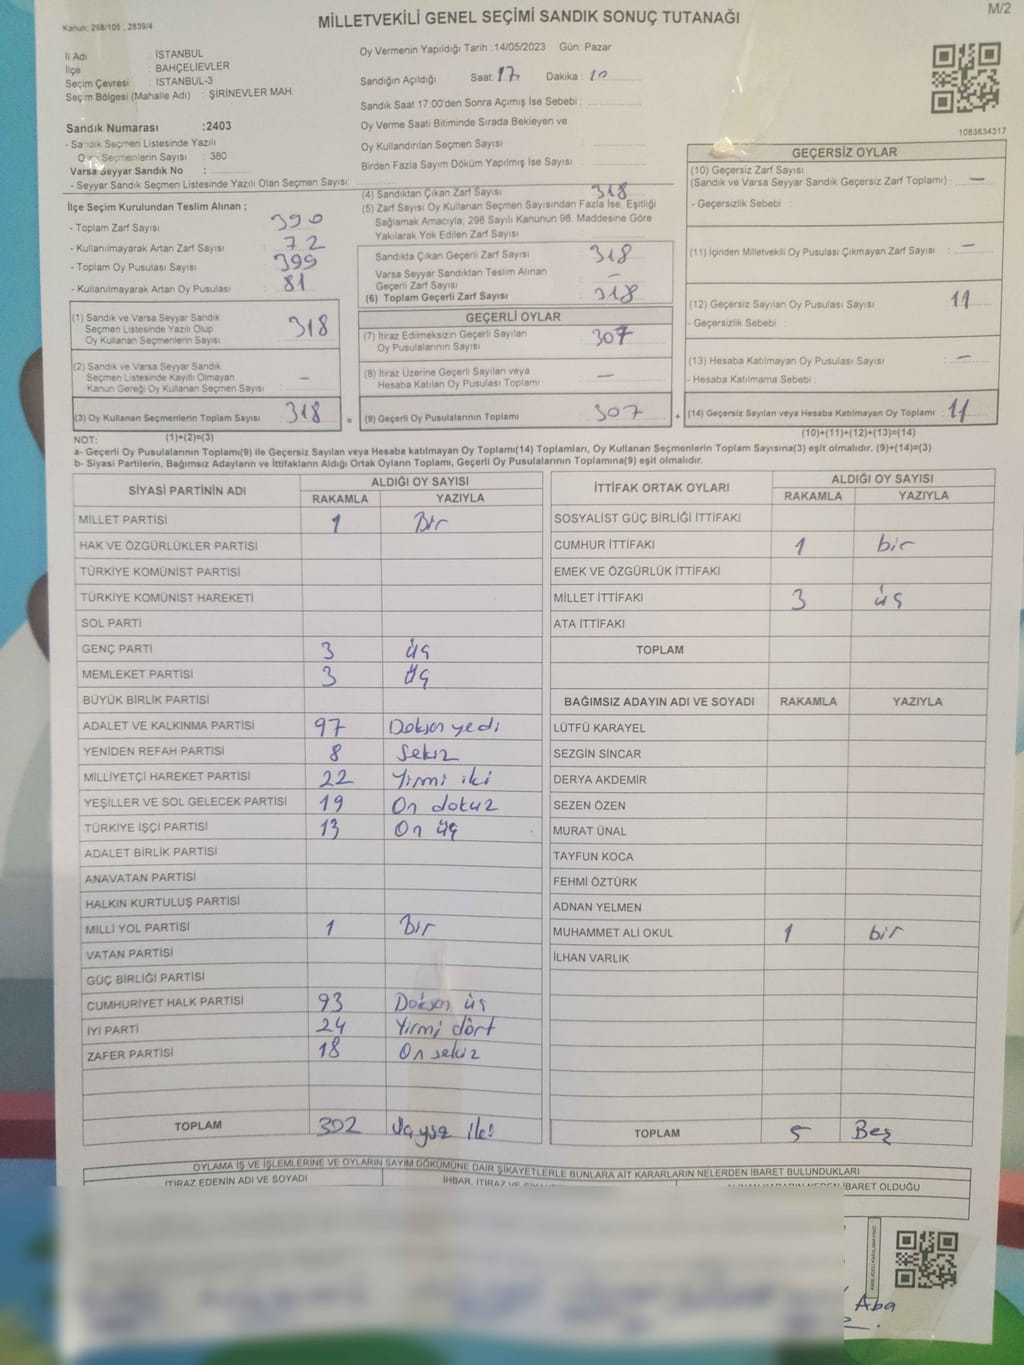 M/2
Kanun: 298/105 , 2839/4
MİLLETVEKİLİ GENEL SEÇİMİ SANDIK SONUÇ TUTANAĞI
İl Adı : İSTANBUL
İlçe : BAHÇELİEVLER
Seçim Çevresi : İSTANBUL-3
Seçim Bölgesi (Mahalle Adı) : ŞİRİNEVLER MAH.
Sandık Numarası :2403
- Sandık Seçmen Listesinde Yazılı
Seçmenlerin Sayısı : 380
Varsa Seyyar Sandık No :
- Seyyar Sandık Seçmen Listesinde Yazılı Olan Seçmen Sayısı:
İlçe Seçim Kurulundan Teslim Alınan ;
- Toplam Zarf Sayısı : 390
- Kullanılmayarak Artan Zarf Sayısı : 72
- Toplam Oy Pusulası Sayısı : 399
- Kullanılmayarak Artan Oy Pusulası : 81
(1) Sandık ve Varsa Seyyar Sandık
Seçmen Listesinde Yazılı Olup
Oy Kullanan Seçmenlerin Sayısı : 318
(2) Sandık ve Varsa Seyyar Sandık
Seçmen Listesinde Kayıtlı Olmayan
Kanun Gereği Oy Kullanan Seçmen Sayısı : –
(3) Oy Kullanan Seçmenlerin Toplam Sayısı : 318 =
Oy Vermenin Yapıldığı Tarih : 14/05/2023 Gün: Pazar
Sandığın Açıldığı Saat: 17 Dakika : 10
Sandık Saat 17:00'den Sonra Açımış İse Sebebi :
Oy Verme Saati Bitiminde Sırada Bekleyen ve
Oy Kullandırılan Seçmen Sayısı :
Birden Fazla Sayım Döküm Yapılmış İse Sayısı :
(4) Sandıktan Çıkan Zarf Sayısı : 318
(5) Zarf Sayısı Oy Kullanan Seçmen Sayısından Fazla İse, Eşitliği
Sağlamak Amacıyla; 298 Sayılı Kanunun 98. Maddesine Göre
Yakılarak Yok Edilen Zarf Sayısı :
Sandıkta Çıkan Geçerli Zarf Sayısı : 318
Varsa Seyyar Sandıktan Teslim Alınan
Geçerli Zarf Sayısı : –
(6) Toplam Geçerli Zarf Sayısı : 318
GEÇERLİ OYLAR
(7) İtiraz Edilmeksizin Geçerli Sayılan
Oy Pusulalarının Sayısı : 307
(8) İtiraz Üzerine Geçerli Sayılan veya
Hesaba Katılan Oy Pusulası Toplamı : –
(9) Geçerli Oy Pusulalarının Toplamı : 307 +
1083634317
GEÇERSİZ OYLAR
(10) Geçersiz Zarf Sayısı
(Sandık ve Varsa Seyyar Sandık Geçersiz Zarf Toplamı) : –
- Geçersizlik Sebebi :
(11) İçinden Milletvekili Oy Pusulası Çıkmayan Zarf Sayısı : –
(12) Geçersiz Sayılan Oy Pusulası Sayısı : 11
- Geçersizlik Sebebi :
(13) Hesaba Katılmayan Oy Pusulası Sayısı : –
- Hesaba Katılmama Sebebi :
(14) Geçersiz Sayılan veya Hesaba Katılmayan Oy Toplamı : 11
NOT: (1)+(2)=(3) (10)+(11)+(12)+(13)=(14)
a- Geçerli Oy Pusulalarının Toplamı(9) ile Geçersiz Sayılan veya Hesaba katılmayan Oy Toplamı(14) Toplamları, Oy Kullanan Seçmenlerin Toplam Sayısına(3) eşit olmalıdır. (9)+(14)=(3)
b- Siyasi Partilerin, Bağımsız Adayların ve İttifakların Aldığı Ortak Oyların Toplamı, Geçerli Oy Pusulalarının Toplamına(9) eşit olmalıdır.
SİYASİ PARTİNİN ADI ALDIĞI OY SAYISI
RAKAMLA YAZIYLA
MİLLET PARTİSİ 1 Bir
HAK VE ÖZGÜRLÜKLER PARTİSİ
TÜRKİYE KOMÜNİST PARTİSİ
TÜRKİYE KOMÜNİST HAREKETİ
SOL PARTİ
GENÇ PARTİ 3 üç
MEMLEKET PARTİSİ 3 üç
BÜYÜK BİRLİK PARTİSİ
ADALET VE KALKINMA PARTİSİ 97 Doksan yedi
YENİDEN REFAH PARTİSİ 8 Sekiz
MİLLİYETÇİ HAREKET PARTİSİ 22 Yirmi iki
YEŞİLLER VE SOL GELECEK PARTİSİ 19 On dokuz
TÜRKİYE İŞÇİ PARTİSİ 13 On üç
ADALET BİRLİK PARTİSİ
ANAVATAN PARTİSİ
HALKIN KURTULUŞ PARTİSİ
MİLLİ YOL PARTİSİ 1 Bir
VATAN PARTİSİ
GÜÇ BİRLİĞİ PARTİSİ
CUMHURİYET HALK PARTİSİ 93 Doksan üç
İYİ PARTİ 24 Yirmi dört
ZAFER PARTİSİ 18 On sekiz
TOPLAM 302 Üçyüz iki
İTTİFAK ORTAK OYLARI ALDIĞI OY SAYISI
RAKAMLA YAZIYLA
SOSYALİST GÜÇ BİRLİĞİ İTTİFAKI
CUMHUR İTTİFAKI 1 bir
EMEK VE ÖZGÜRLÜK İTTİFAKI
MİLLET İTTİFAKI 3 üç
ATA İTTİFAKI
TOPLAM
BAĞIMSIZ ADAYIN ADI VE SOYADI RAKAMLA YAZIYLA
LÜTFÜ KARAYEL
SEZGİN SİNCAR
DERYA AKDEMİR
SEZEN ÖZEN
MURAT ÜNAL
TAYFUN KOCA
FEHMİ ÖZTÜRK
ADNAN YELMEN
MUHAMMET ALİ OKUL 1 bir
İLHAN VARLIK
TOPLAM 5 Beş
OYLAMA İŞ VE İŞLEMLERİNE VE OYLARIN SAYIM DÖKÜMÜNE DAİR ŞİKAYETLERLE BUNLARA AİT KARARLARIN NELERDEN İBARET BULUNDUKLARI
İTİRAZ EDENİN ADI VE SOYADI İHBAR, İTİRAZ VE İBARET OLDUĞU
Aba